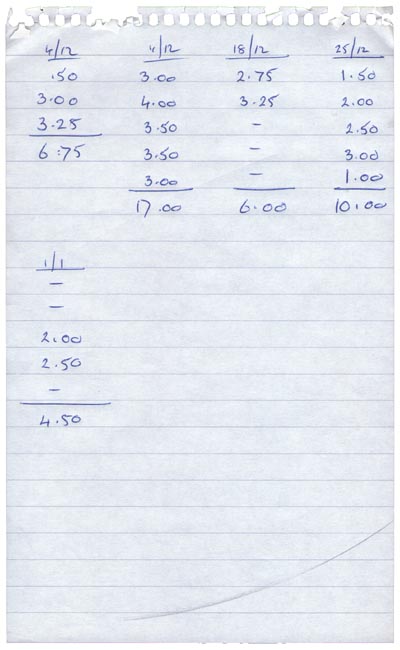 4/12 4/12 18/12 25/12
.50 3.00 2.75 1.50
3.00 4.00 3.25 2.00
3.25 3.50 - 2.50
6.75 3.50 - 3.00
3.00 - 1.00
17.00 6.00 10.00
1/1
-
-
2.00
2.50
-
4.50